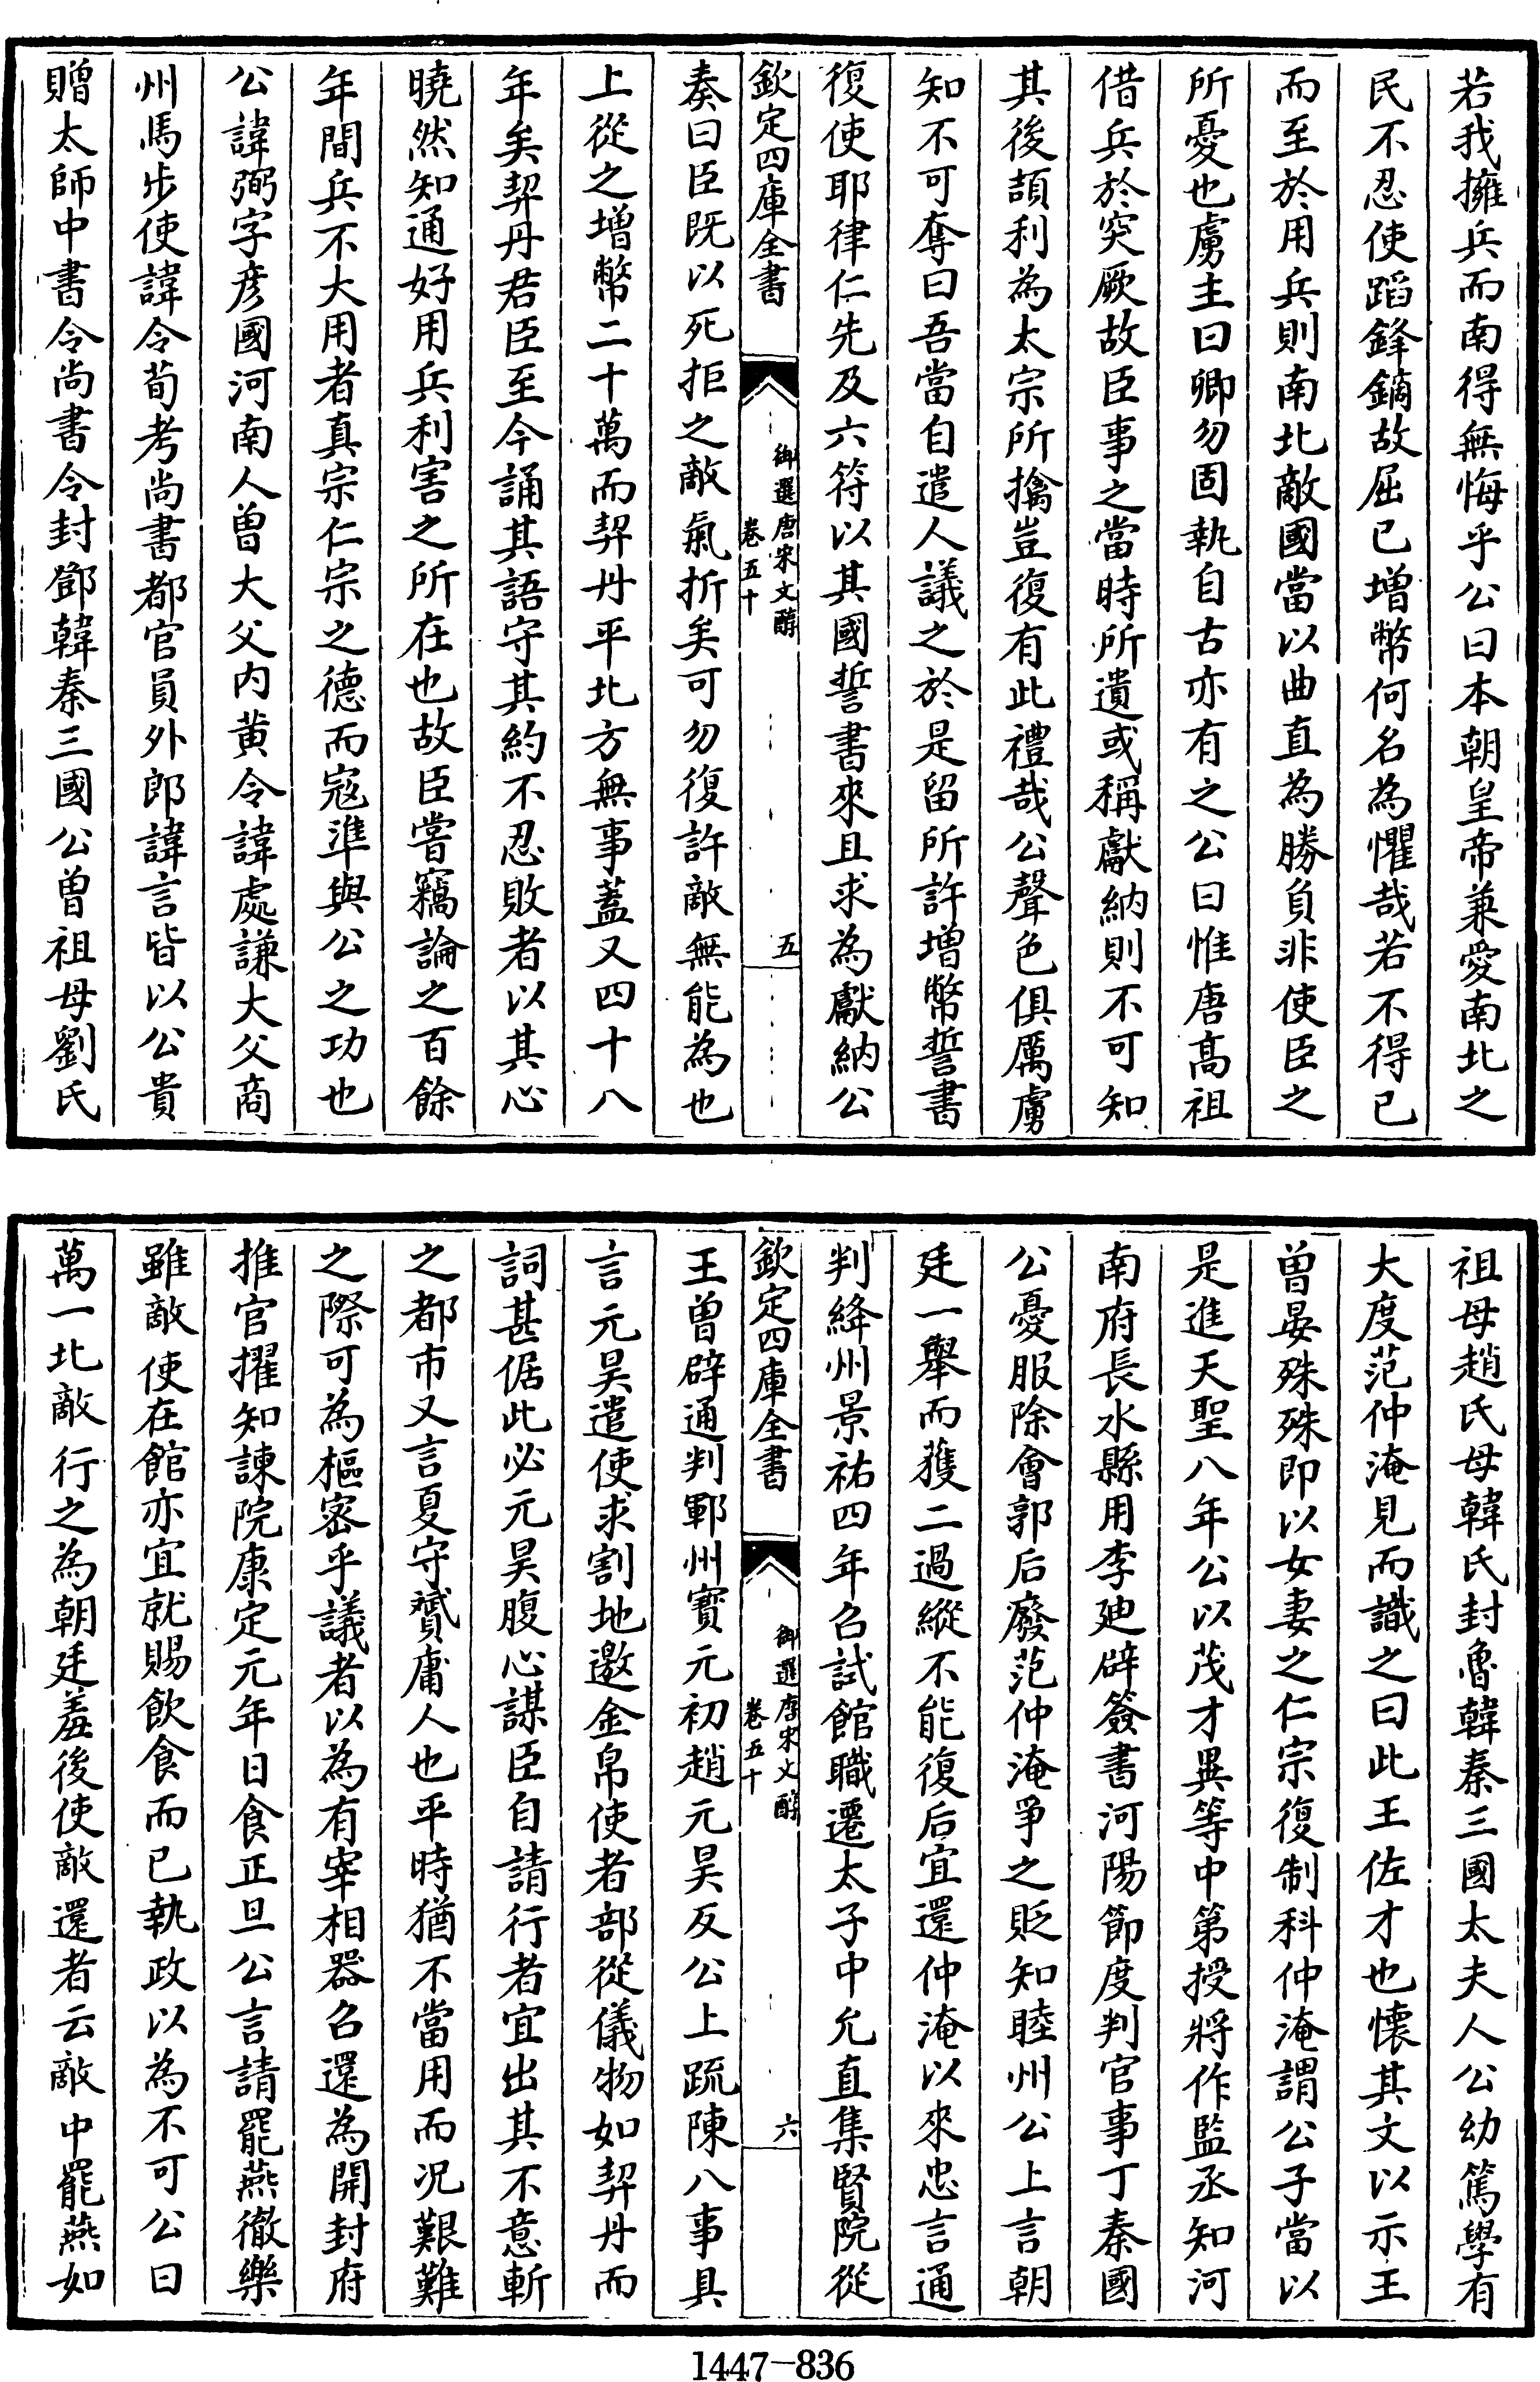 若我擁兵而南得無悔乎公曰本朝皇帝兼愛南北之
民不忍使蹈鋒鏑故屈已增幣何名為懼哉若不得已
而至於用兵則南北敵國當以曲直為勝負非使臣之
所憂也虜主曰卿勿固執自古亦有之公曰惟唐髙祖
借兵於突厥故臣事之當時所遺或稱獻納則不可知
其後頡利為太宗所擒豈復有此禮哉公聲色俱厲虜
知不可奪曰吾當自遣人議之於是留所許增幣誓書
復使耶律仁先及六符以其國誓書來且求為獻納公
欽定四庫全書
御選唐宋文醇
卷五十
五
奏曰臣既以死拒之敵氣折矣可勿復許敵無能為也
上從之增幣二十萬而契丹平北方無事蓋又四十八
年矣契丹君臣至今誦其語守其約不忍敗者以其心
曉然知通好用兵利害之所在也故臣嘗竊論之百餘
年間兵不大用者真宗仁宗之德而寇準與公之功也
公諱弼字彦國河南人曾大父内黄令諱處謙大父商
州馬步使諱令荀考尚書都官員外郎諱言皆以公貴
贈太師中書令尚書令封鄧韓秦三國公曾祖母劉氏
祖母趙氏母韓氏封魯韓秦三國太夫人公幼篤學有
大度范仲淹見而識之曰此王佐才也懷其文以示王
曾晏殊殊即以女妻之仁宗復制科仲淹謂公子當以
是進天聖八年公以茂才異等中第授將作監丞知河
南府長水縣用李廸辟簽書河陽節度判官事丁秦國
公憂服除會郭后廢范仲淹爭之貶知睦州公上言朝
廷一舉而獲二過縱不能復后宜還仲淹以來忠言通
判絳州景祐四年召試館職遷太子中允直集賢院從
欽定四庫全書
御選唐宋文醇
卷五十
六
王曾辟通判鄆州寳元初趙元昊反公上疏陳八事具
言元昊遣使求割地邀金帛使者部從儀物如契丹而
詞甚倨此必元昊腹心謀臣自請行者宜出其不意斬
之都市又言夏守贇庸人也平時猶不當用而况艱難
之際可為樞密乎議者以為有宰相器召還為開封府
推官擢知諫院康定元年日食正旦公言請罷燕徹樂
雖敵使在館亦宜就賜飲食而已執政以為不可公曰
萬一北敵行之為朝廷羞後使敵還者云敵中罷燕如
1447-836